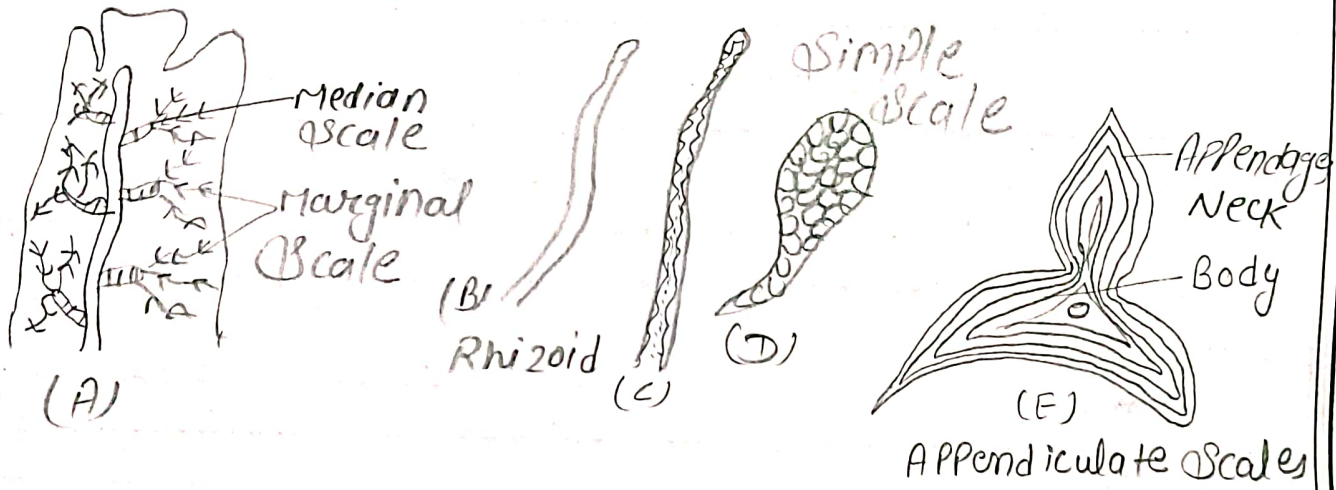 Median
Scale
Marginal
Scale
(A)
(B)
Rhizoid
(C)
Simple
Scale
(D)
Appendage
Neck
Body
(E)
Appendiculate Scales